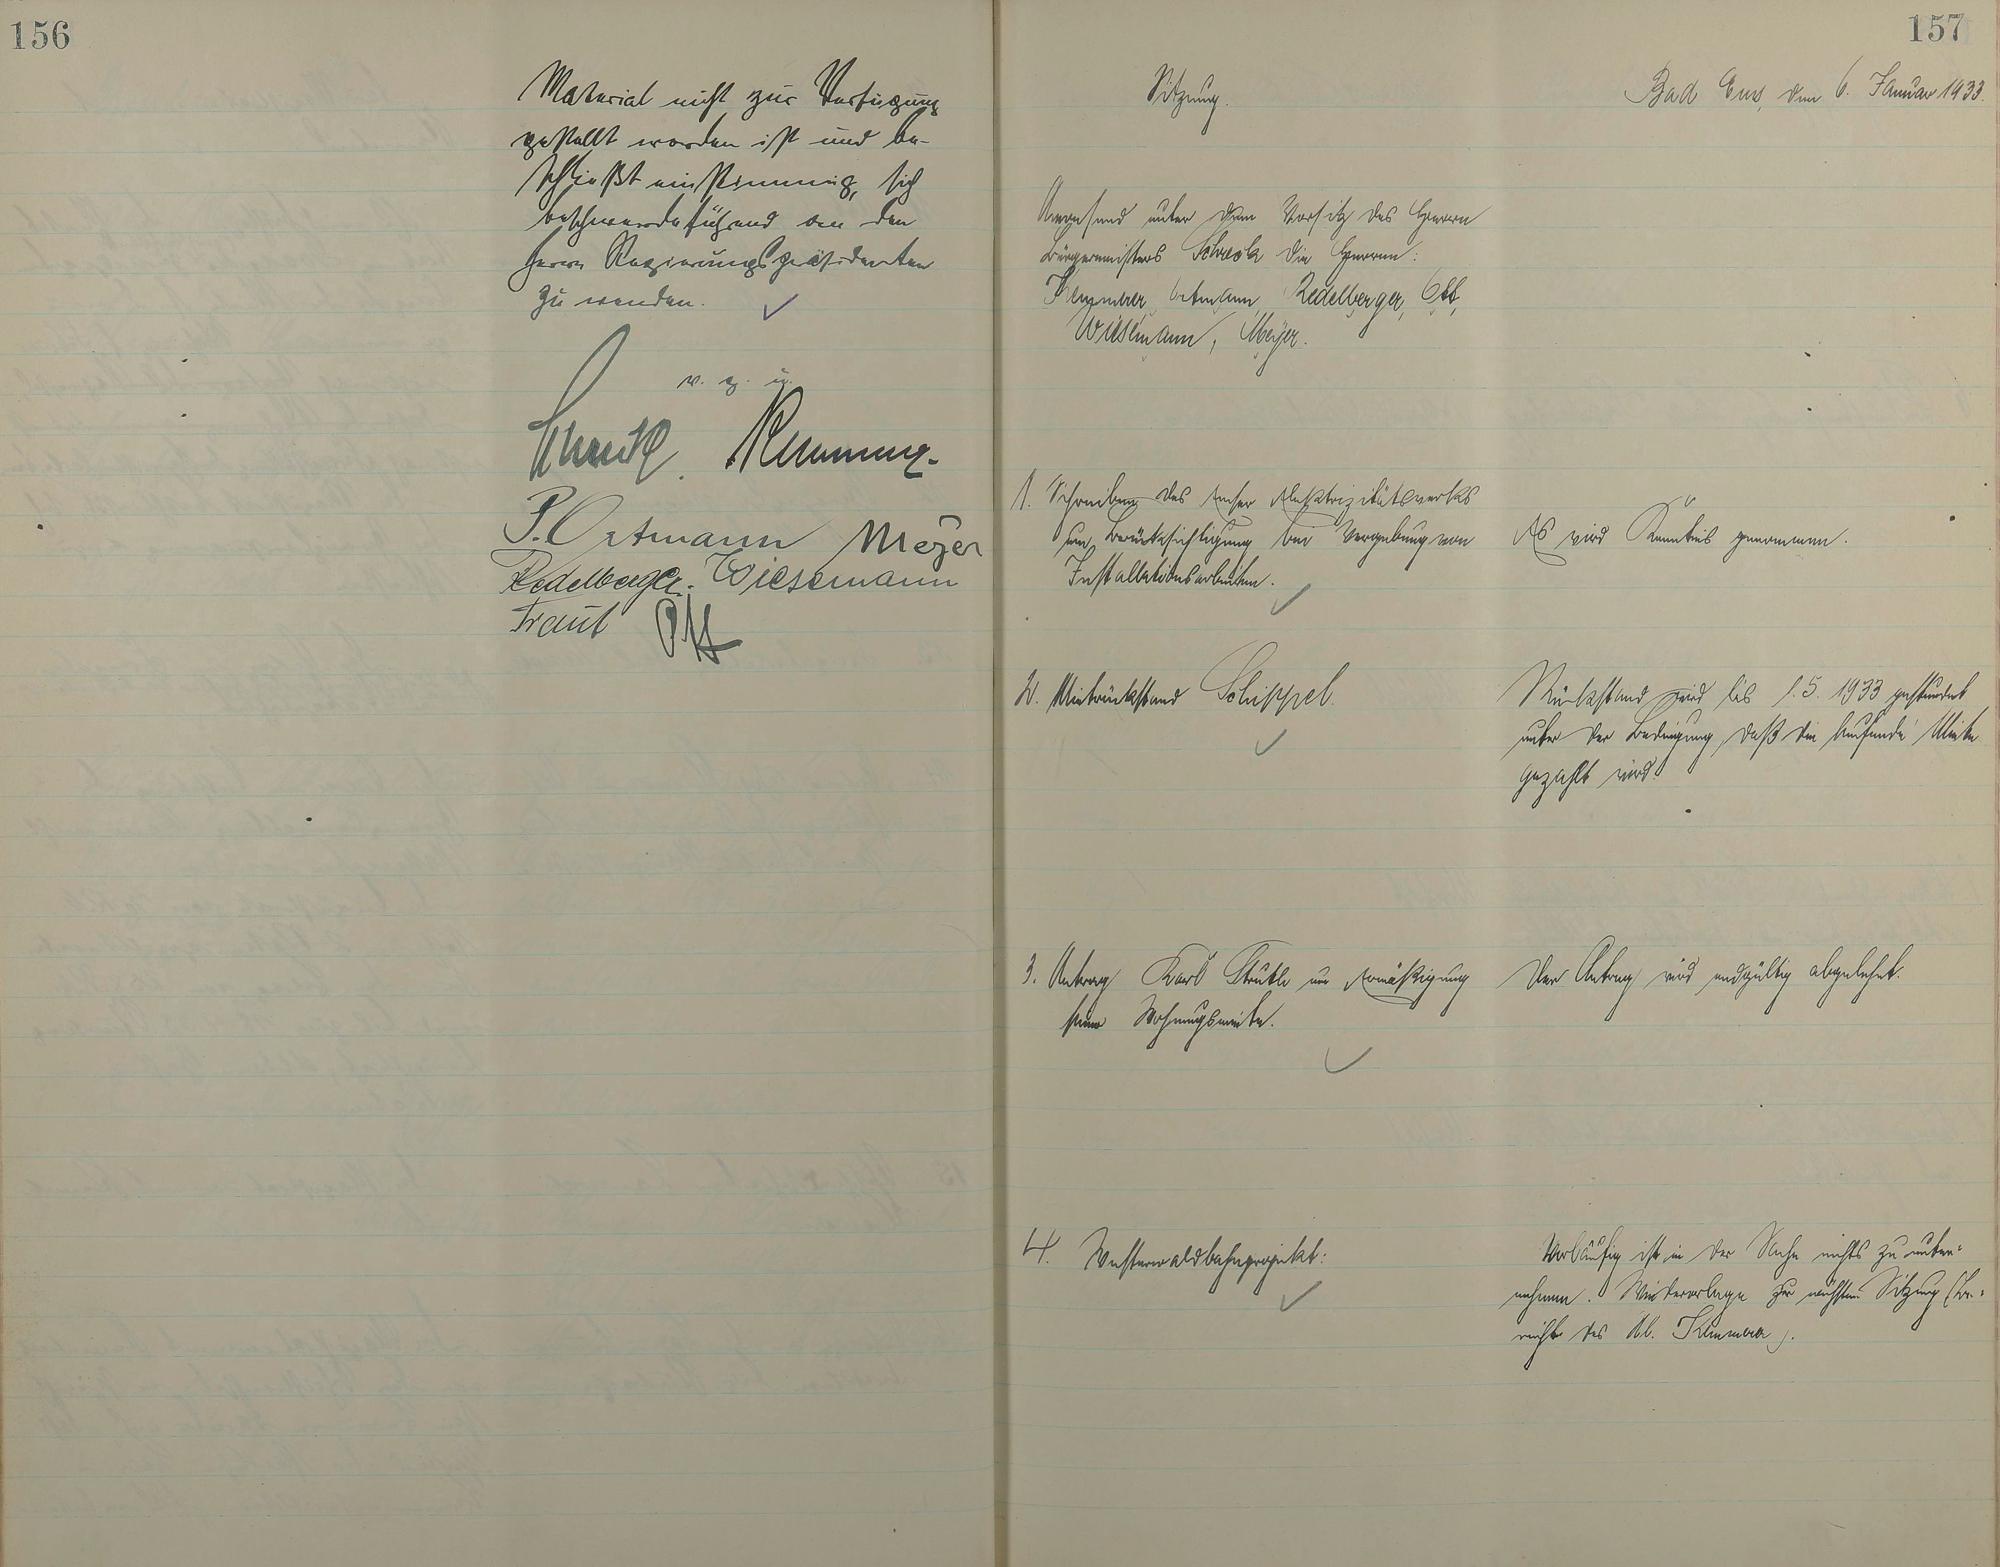 156
Material nicht zur Verfügung
gestellt worden ist und be-
schließt einstimmig, sich
beschwerdeführend an den
Herrn Regierungspräsidenten
zu wenden.
v. g. u.
Schreck. Klemmer.
P. Ortmann Meyer
Redelberger. Wiesemann
Traut Ott
157
Sitzung.
Bad Ems, den 6. Januar 1933.
Anwesend unter dem Vorsitz des Herrn
Bürgermeisters Schreck die Herren:
Klemmer, Ortmann, Redelberger, Ott,
Wiesemann, Meyer.
1. Schreiben des Emser Elektrizitätswerks
um Berücksichtigung bei Vergebung von
Installationsarbeiten.
Es wird Kenntnis genommen.
2. Mietrückstand Schippel.
Rückstand wird bis 1.5. 1933 gestundet
unter der Bedingung, daß die laufende Miete
gezahlt wird.
3. Antrag Karl um Ermäßigung
seiner Wohnungsmiete.
Der Antrag wird endgültig abgelehnt.
4. Westerwaldbahnprojekt:
Vorläufig ist in der Sache nichts zu unter=
nehmen. Wiedervorlage zur nächsten Sitzung (Be=
richt des Klemmer).